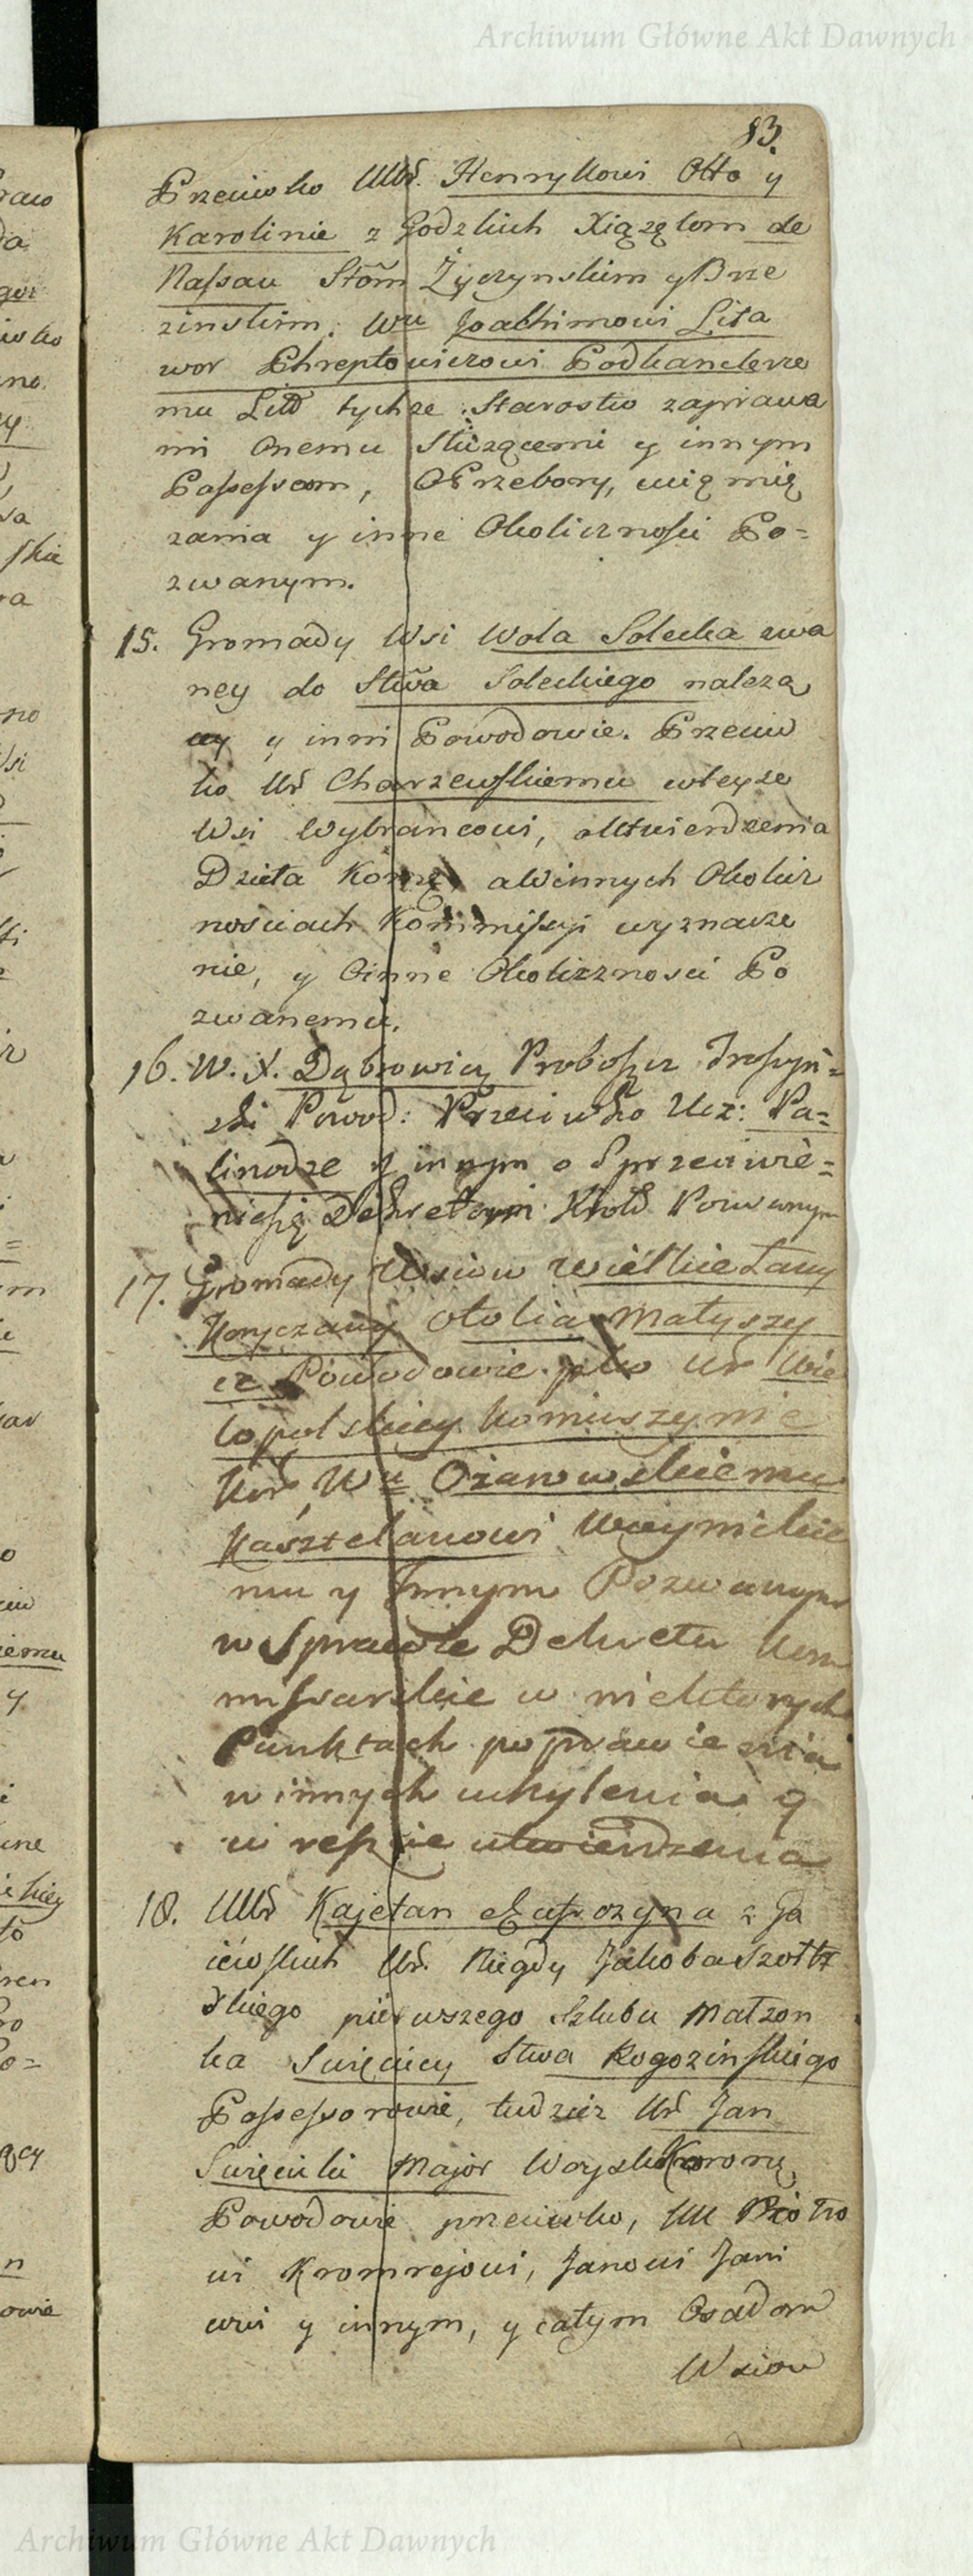 Archiwum Główne Akt Dawnych
83.
Przeciwko UUr. Henrykowi Otto y
Karolinie z Godzkich Xiążętom de
Nassau Stom Zyczynskim y Brze
zinskim. Wu Joachimowi Lita
wor Chreptowiczowi Podkanclerze
mu Litt tychże Starostw zaprawa
mi onemu Służącemi y innym
Possessom, O Przebory, uciemię
zania y inne Okoliczności Po=
zwanym.
15. Gromady Wsi Wola Solecka zwa
ney do Stwa Soleckiego nalezą
cy y inni Powodowie. Przeciw
ko Ur Charzewskiemu wteyze
Wsi Wybrancowi, o Utwierdzenia
Dzieła Kom̃, a Winnych Okolicz
nościach Kommissyi wyznacze
nie, y Oinne Okoliczności Po
zwanemu.
16. W. X. Dąbrowicy Proboszcz
ski Powod: Przeciwko Ucz: Pa=
linodze y innym o Sprzeciwie=
niesię Dekretom Pozwanym
17. Gromady Wsiow Wielkie Łany
Otolia Matyszy
cz Powodowie pko Ur Wie
lopolskiey Koniuszynie
Kor, Wu Ożarowskiemu
Kasztelanowi Woynickie
mu y Innym Pozwanym
w Sprawie Dekretu Kom
missarskie w niektorych
Punktach poprawienia
w innych uchylenia y
w reszcie utwierdzenia
18. UUr Kajetan z Ja
Ur. Niegdy Jakoba Szołtz
skiego pierwszego Szlubu Małzon
ka Swięciccy Stwa Rogozinskiego
Possessorowie, tudziez Ur Jan
Swięcicki Major Woysk Koronq
Powodowie przeciwko, UU Piotro
wi Kromrejowi, Janowi Jani
cowi y innym, y całym Osadom
Wsiow
Archiwum Główne Akt Dawnych